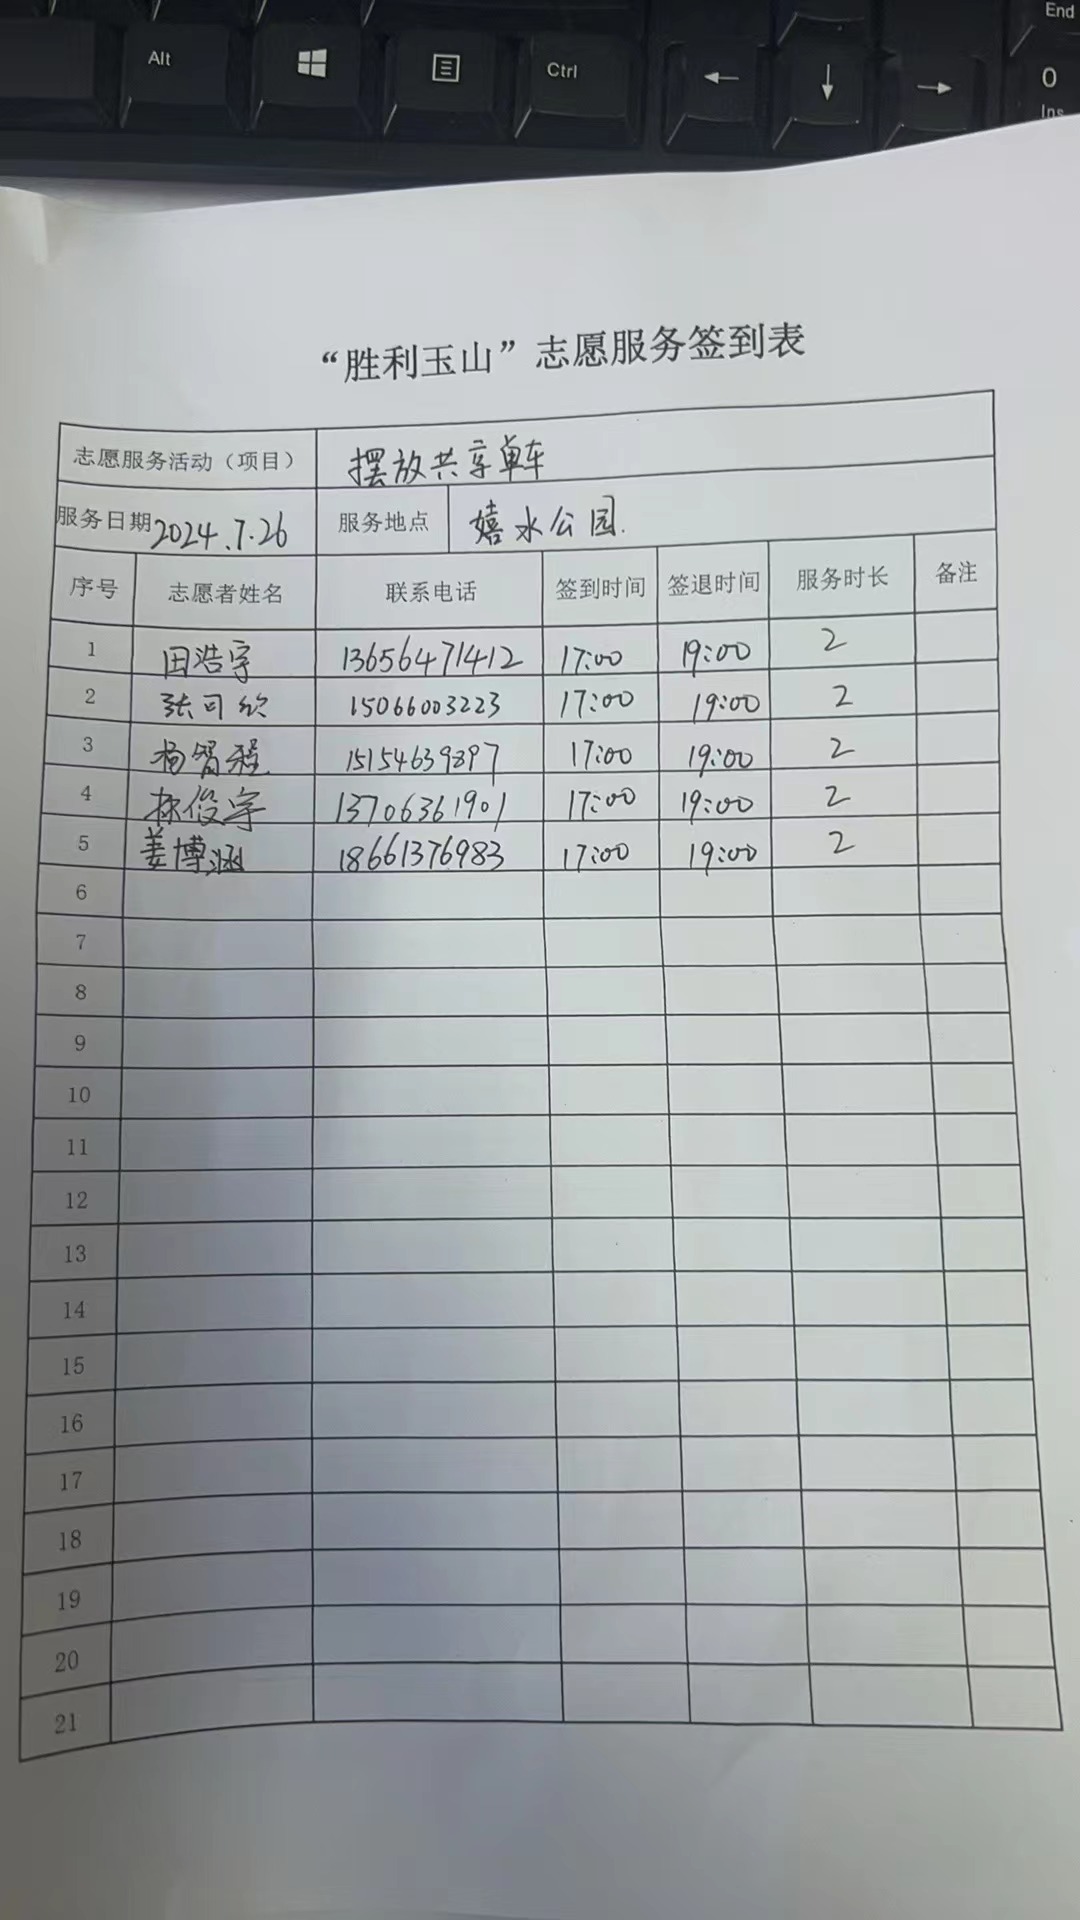 End
Alt
Ctrl
←
↓
→
0
Ins
“胜利玉山”志愿服务签到表
志愿服务活动（项目） 摆放共享单车
服务日期 2024.7.26 服务地点 嬉水公园.
序号 志愿者姓名 联系电话 签到时间 签退时间 服务时长 备注
1 田浩宇 13656471412 17:00 19:00 2
2 张可欣 15066003223 17:00 19:00 2
3 杨智程 15154639897 17:00 19:00 2
4 俊宇 13706361901 17:00 19:00 2
5 姜博涵 18661376983 17:00 19:00 2
6
7
8
9
10
11
12
13
14
15
16
17
18
19
20
21